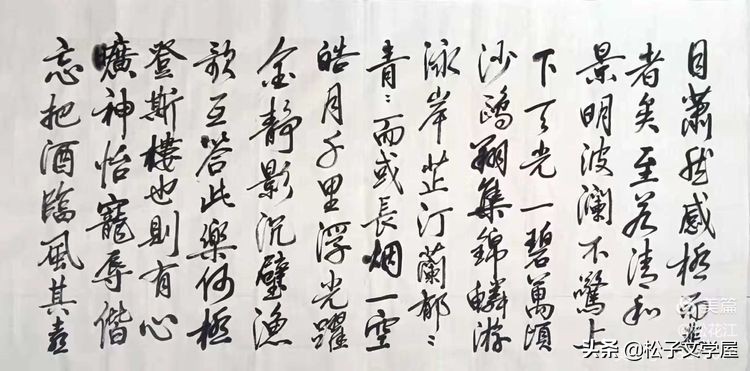 目蕭然感極而悲
者矣至若清和
景明波瀾不驚上
下天光一碧萬頃
沙鷗翔集錦鱗游
泳岸芷汀蘭郁〻
青〻而或長烟一空
皓月千里浮光躍
金靜影沉璧漁
歌互答此樂何極
登斯樓也則有心
曠神怡寵辱偕
忘把酒臨風其喜
美篇
花江
头条 @松子文学屋